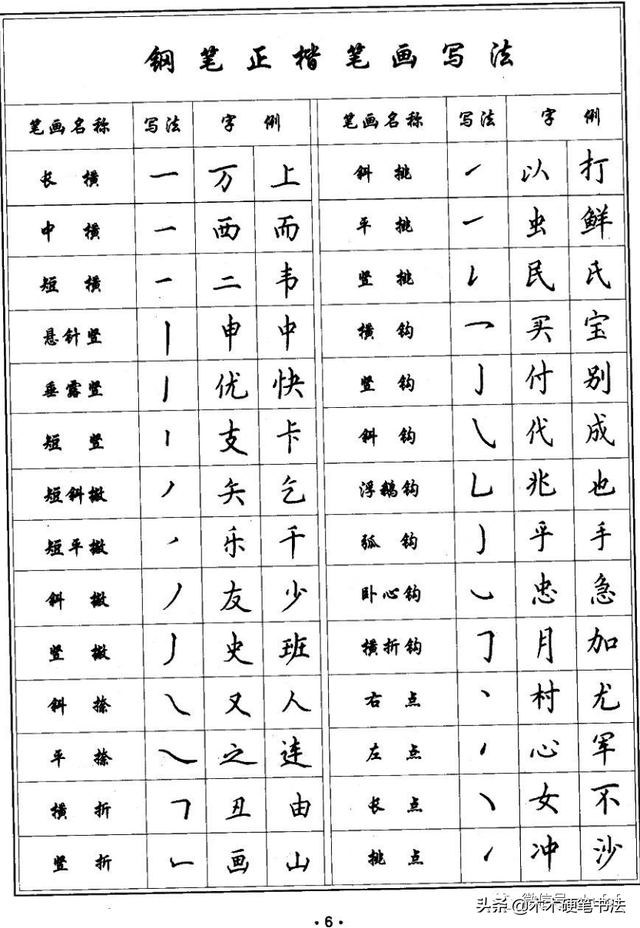 钢笔正楷笔画写法
笔画名称 写法 字例 笔画名称 写法 字例
长横 一 万 上 斜挑 ㇀ 以 打
中横 一 西 而 平挑 ㇀ 虫 鲜
短横 一 二 韦 竖挑 ㇙ 民 氏
悬针竖 丨 申 中 横钩 ㇖ 买 宝
垂露竖 丨 优 快 竖钩 亅 付 别
短竖 丨 支 卡 斜钩 ㇂ 代 成
短斜撇 丿 矢 乞 浮鹅钩 乚 兆 也
短平撇 ㇒ 乐 千 弧钩 ㇁ 乎 手
斜撇 丿 友 少 卧心钩 ㇃ 忠 急
竖撇 ㇓ 史 班 横折钩 ㇆ 月 加
斜捺 ㇏ 又 人 右点 丶 村 尤
平捺 ㇏ 之 连 左点 ㇒ 心 军
横折 ㇕ 丑 由 长点 ㇔ 女 不
竖折 ㇗ 画 山 挑点 ㇀ 冲 沙
微信号
头条@木木硬笔书法
·6·